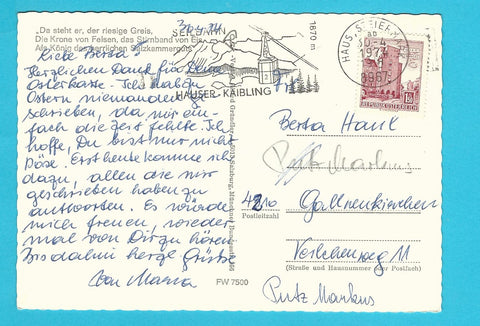 „Da steht er, der riesige Greis,
Die Krone von Felsen, das Stirnband von Eis,
Als König des herrlichen Salzkammerguts"
30.4.74
Liebe Berta!
Herzlichen Dank für Deine
Osterkarte. Ich habe zu
Ostern niemandem ge-
schrieben, da mir ein-
fach die Zeit fehlte. Ich
hoffe, Du bist mir nicht
böse. Erst heute komme ich
dazu, allen die mir
geschrieben haben zu
antworten. Es würde
mich freuen, wieder
mal von Dir zu hören.
Bis dahin herzl. Grüße
von Maria
SEILBAHN
1870 m
HAUSER-KAIBLING
HAUS, STEIERMARK
30.-4.
1974
8967
REPUBLIK ÖSTERREICH
Berta Hauk
Putz Markus
4210 Gallneukirchen
Postleitzahl
Veilchenweg 11
(Straße und Hausnummer oder Postfach)
Putz Markus
FW 7500